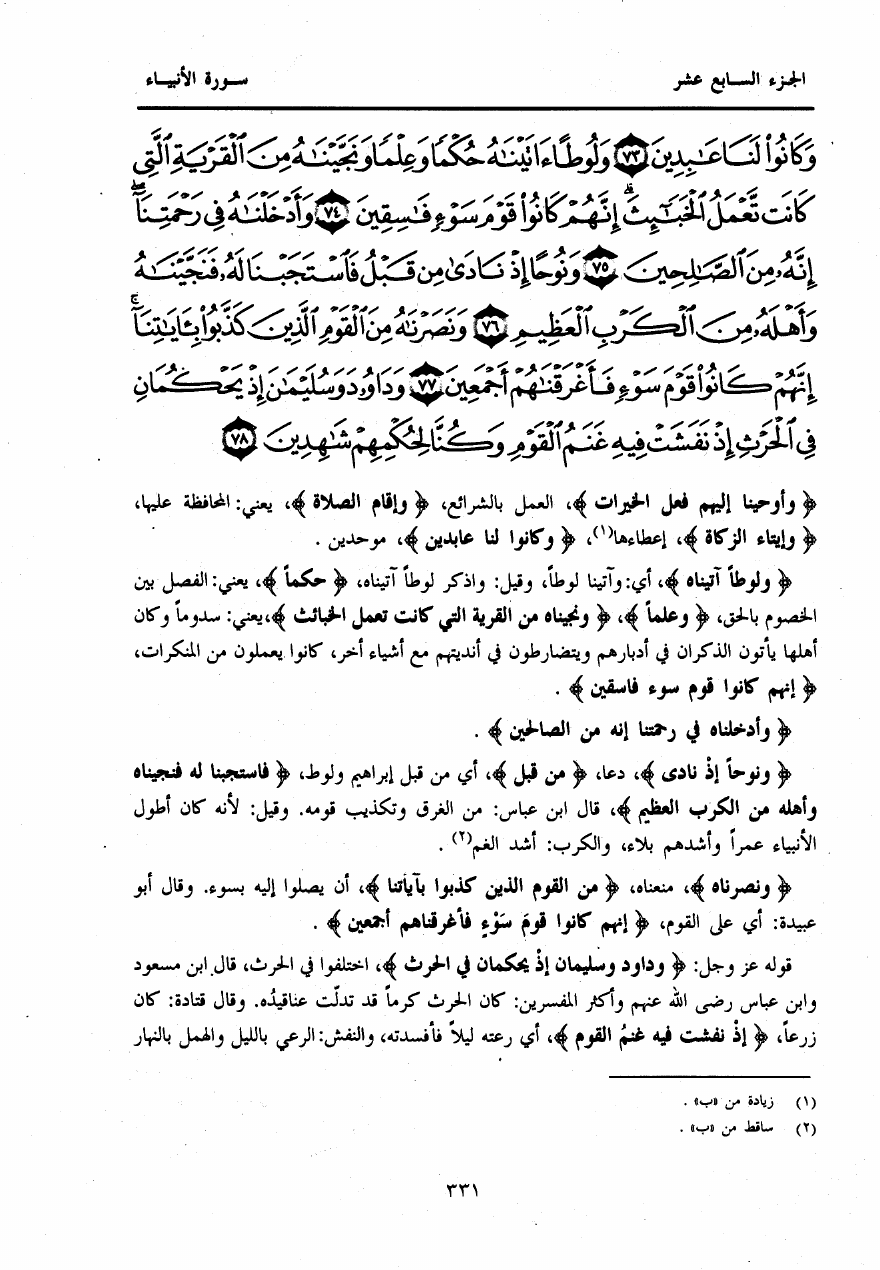 الجزء السابع عشر
سورة الأنبياء
وَكَانُوا۟ لَنَا عَٰبِدِينَ ﴿٧٣﴾ وَلُوطًا ءَاتَيْنَٰهُ حُكْمًا وَعِلْمًا وَنَجَّيْنَٰهُ مِنَ ٱلْقَرْيَةِ ٱلَّتِى
كَانَت تَّعْمَلُ ٱلْخَبَٰٓئِثَ ۗ إِنَّهُمْ كَانُوا۟ قَوْمَ سَوْءٍ فَٰسِقِينَ ﴿٧٤﴾ وَأَدْخَلْنَٰهُ فِى رَحْمَتِنَآ ۖ
إِنَّهُۥ مِنَ ٱلصَّٰلِحِينَ ﴿٧٥﴾ وَنُوحًا إِذْ نَادَىٰ مِن قَبْلُ فَٱسْتَجَبْنَا لَهُۥ فَنَجَّيْنَٰهُ
وَأَهْلَهُۥ مِنَ ٱلْكَرْبِ ٱلْعَظِيمِ ﴿٧٦﴾ وَنَصَرْنَٰهُ مِنَ ٱلْقَوْمِ ٱلَّذِينَ كَذَّبُوا۟ بِـَٔايَٰتِنَآ ۚ
إِنَّهُمْ كَانُوا۟ قَوْمَ سَوْءٍ فَأَغْرَقْنَٰهُمْ أَجْمَعِينَ ﴿٧٧﴾ وَدَاوُۥدَ وَسُلَيْمَٰنَ إِذْ يَحْكُمَانِ
فِى ٱلْحَرْثِ إِذْ نَفَشَتْ فِيهِ غَنَمُ ٱلْقَوْمِ وَكُنَّا لِحُكْمِهِمْ شَٰهِدِينَ ﴿٧٨﴾
﴿ وأوحينا إليهم فعل الخيرات ﴾، العمل بالشرائع، ﴿ وإقام الصلاة ﴾، يعني: المحافظة عليها،
﴿ وإيتاء الزكاة ﴾، إعطاءها(١)، ﴿ وكانوا لنا عابدين ﴾، موحدين .
﴿ ولوطاً آتيناه ﴾، أي: وآتينا لوطاً، وقيل: واذكر لوطاً آتيناه، ﴿ حكماً ﴾، يعني: الفصل بين
الخصوم بالحق، ﴿ وعلماً ﴾، ﴿ ونجيناه من القرية التي كانت تعمل الخبائث ﴾، يعني: سدوماً وكان
أهلها يأتون الذكران في أدبارهم ويتضارطون في أنديتهم مع أشياء أخر، كانوا يعملون من المنكرات،
﴿ إنهم كانوا قوم سوء فاسقين ﴾ .
﴿ وأدخلناه في رحمتنا إنه من الصالحين ﴾ .
﴿ ونوحاً إذْ نادى ﴾، دعا، ﴿ من قبل ﴾، أي من قبل إبراهيم ولوط، ﴿ فاستجبنا له فنجيناه
وأهله من الكرب العظيم ﴾، قال ابن عباس: من الغرق وتكذيب قومه. وقيل: لأنه كان أطول
الأنبياء عمراً وأشدهم بلاء، والكرب: أشد الغم(٢) .
﴿ ونصرناه ﴾، منعناه، ﴿ من القوم الذين كذبوا بآياتنا ﴾، أن يصلوا إليه بسوء. وقال أبو
عبيدة: أي على القوم، ﴿ إنهم كانوا قومَ سَوْءٍ فأغرقناهم أجمعين ﴾ .
قوله عز وجل: ﴿ وداود وسليمان إذْ يحكمان في الحرث ﴾، اختلفوا في الحرث، قال ابن مسعود
وابن عباس رضى الله عنهم وأكثر المفسرين: كان الحرث كرماً قد تدلّت عناقيدُه. وقال قتادة: كان
زرعاً، ﴿ إذْ نفشت فيه غنمُ القوم ﴾، أي رعته ليلاً فأفسدته، والنفش: الرعي بالليل والهمل بالنهار
(١) زيادة من «ب» .
(٢) ساقط من «ب» .
٣٣١